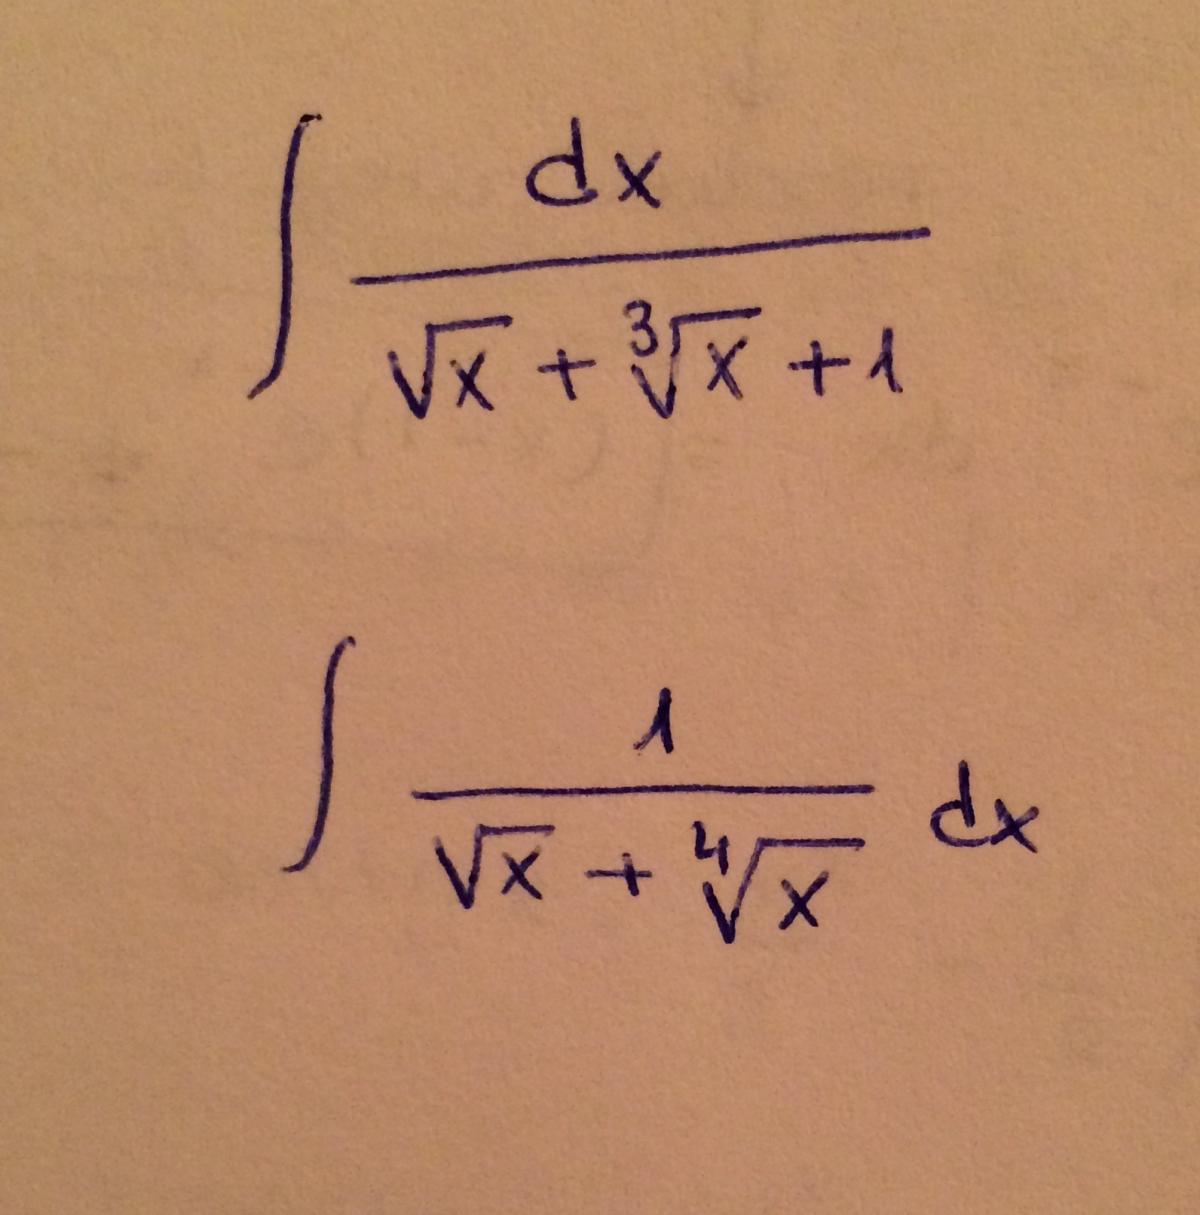 ∫ dx / (√x + ∛x + 1)
∫ 1 / (√x + ∜x) dx